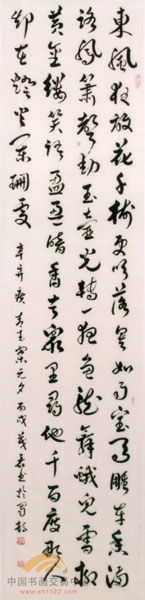 東風夜放花千樹更吹落星如雨寶馬雕車香滿
路鳳簫聲動玉壺光轉一夜魚龍舞蛾兒雪柳
黃金縷笑語盈盈暗香去眾里尋他千百度那人
却在燈火闌珊處
辛弃疾青玉案元夕丙戌書於
中国书画交易中心
www.sh1122.com